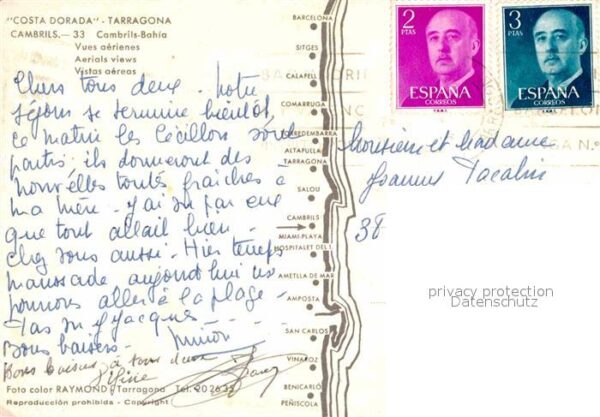 "COSTA DORADA" - TARRAGONA
CAMBRILS.— 33 Cambrils-Bahía
Vues aérienes
Aerials views
Vistas aéreas
Chers tous deux - notre
séjour se termine bientôt,
ce matin les Cécillon sont
partis ils donneront des
nouvelles toutes fraîches à
ma mère - j'ai su par eux
que tout allait bien -
chez vous aussi - Hier temps
maussade aujourd'hui
pouvons aller à la plage -
Bons baisers -
Bons baisers à tous deux
Foto color RAYMOND - Tarragona Tel. 20 26 33
Reproducción prohibida - Copyright
BARCELONA
SITGES
CALAFELL
COMARRUGA
TORREDEMBARRA
ALTAFULLA
TARRAGONA
SALOU
CAMBRILS
MIAMI-PLAYA
HOSPITALET DEL I.
AMETLLA DE MAR
AMPOSTA
SAN CARLOS
VINAROZ
BENICARLÓ
PEÑISCOLA
2
PTAS
ESPAÑA
CORREOS
3
PTAS
ESPAÑA
CORREOS
Monsieur et Madame
38
privacy protection
Datenschutz